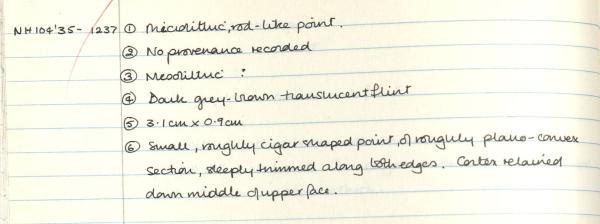 NH104'35-1237 ① Microlithic, rod-like point.
② No provenance recorded
③ Mesolithic ?
④ Dark grey-brown translucent flint
⑤ 3.1cm x 0.9cm
⑥ Small, roughly cigar shaped point, of roughly plano-convex
section, steeply trimmed along both edges. Cortex retained
down middle of upper face.